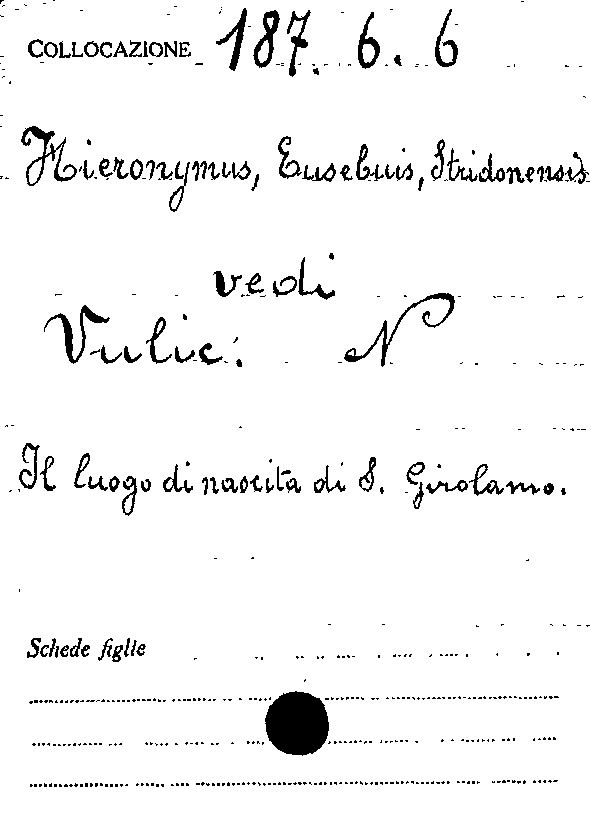 COLLOCAZIONE 187. 6. 6
Hieronymus, Eusebius, Stridonensis
vedi
Vulic: N
Il luogo di nascita di S. Girolamo.
Schede figlie